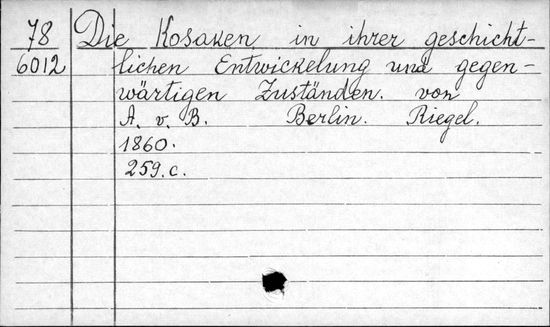 78 Die Kosaken in ihrer geschicht-
6012 lichen Entwickelung und gegen-
wärtigen Zuständen. von
A. v. B. Berlin. Riegel.
1860.
259. c.